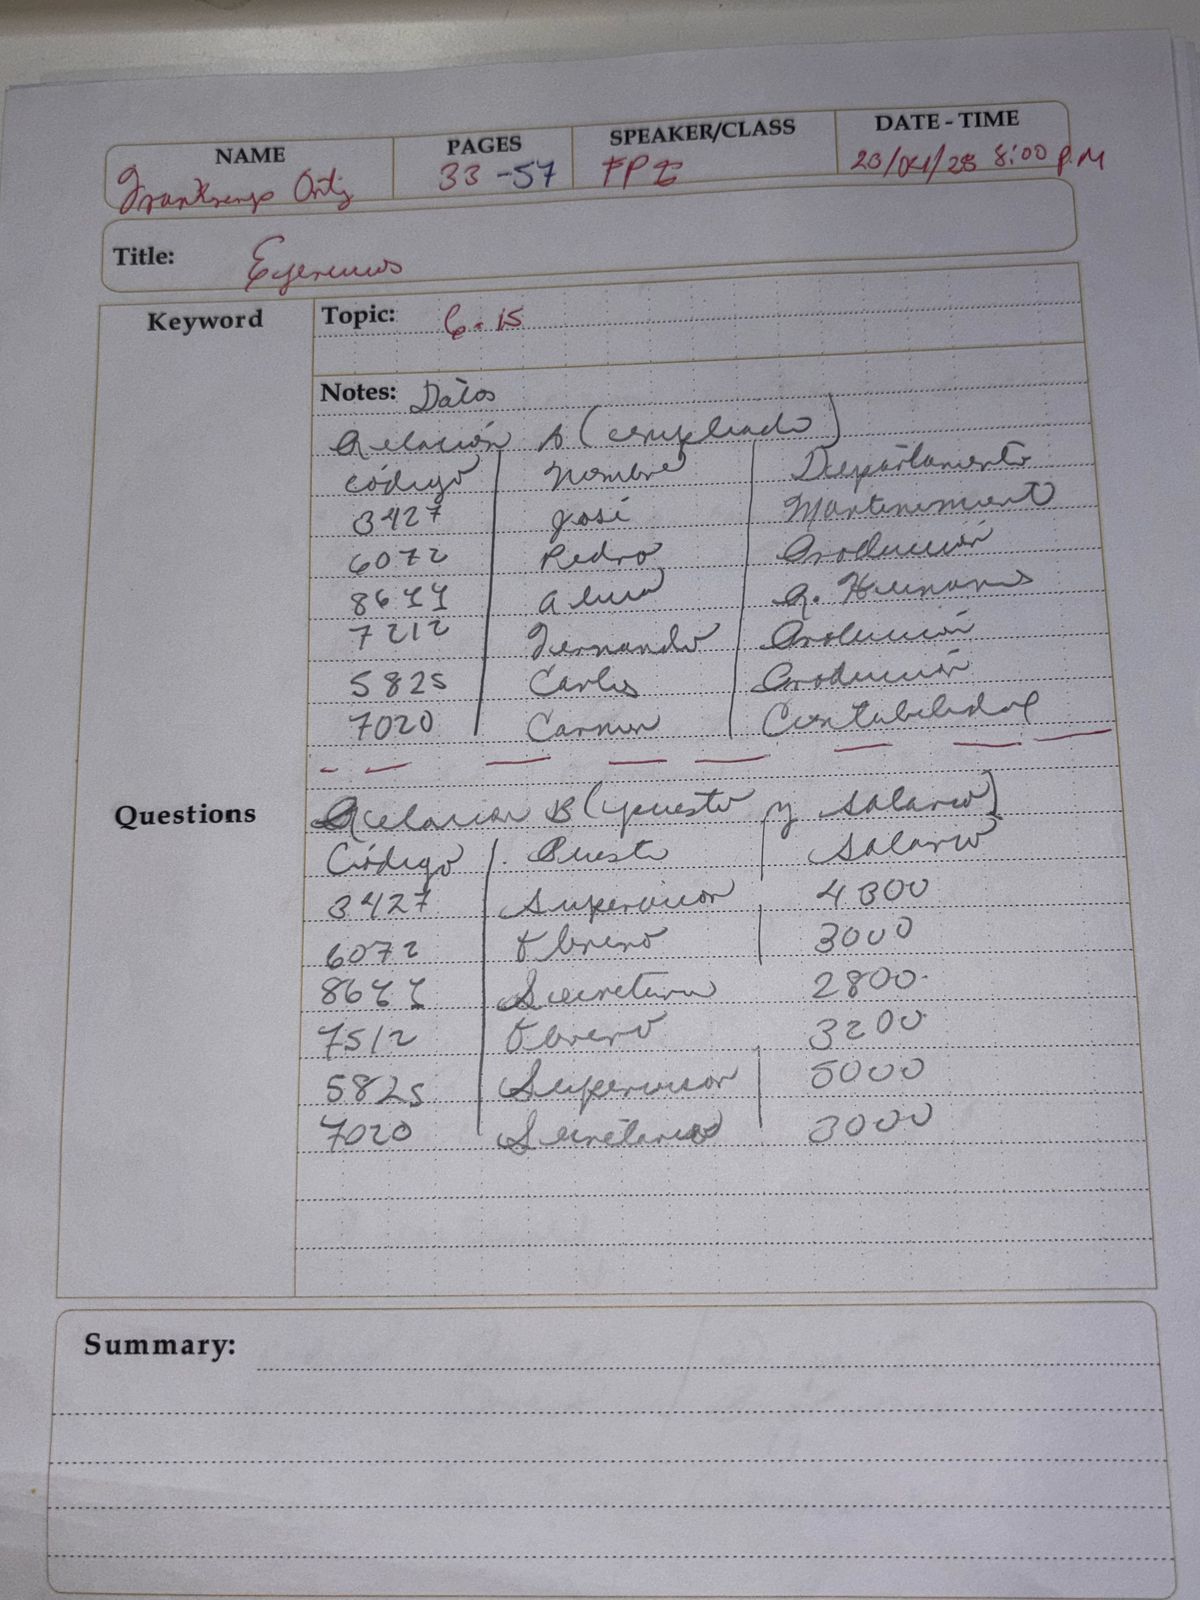 NAME PAGES SPEAKER/CLASS DATE - TIME
Ortiz 33 -57 FPE 8:00 P.M
Title: Ejercicios
Keyword Topic: 6-15
Notes: Datos
Relación A (empleado)
Código Nombre Departamento
3427 José Mantenimiento
6072 Pedro Producción
Alma R. Humanos
7212 Fernando Producción
5825 Carlos Producción
7020 Carmen Contabilidad
Questions Relacion B (puesto y salario)
Código Puesto Salario
3427 Supervisor 4300
6072 Obrero 3000
Secretaria 2800
7512 Obrero 3200
5825 Supervisor 5000
7020 Secretaria 3000
Summary: